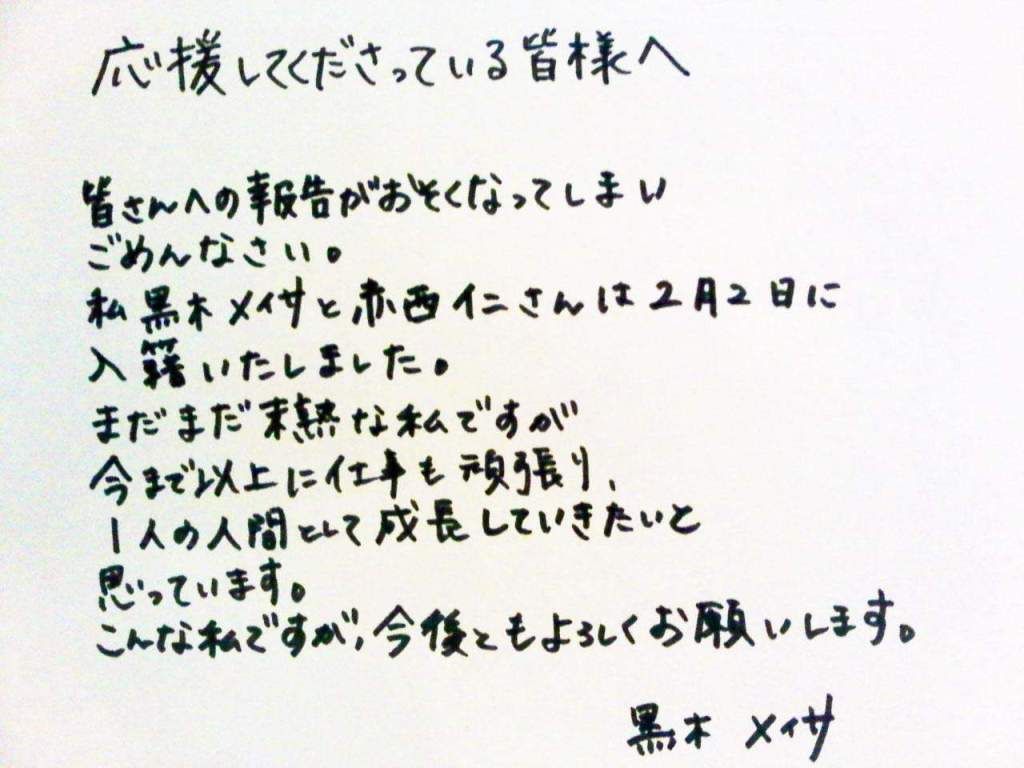 応援してくださっている皆様へ
皆さんへの報告がおそくなってしまい
ごめんなさい。
私黒木メイサと赤西仁さんは2月2日に
入籍いたしました。
まだまだ未熟な私ですが
今まで以上に仕事も頑張り、
1人の人間として成長していきたいと
思っています。
こんな私ですが、今後ともよろしくお願いします。
黒木 メイサ